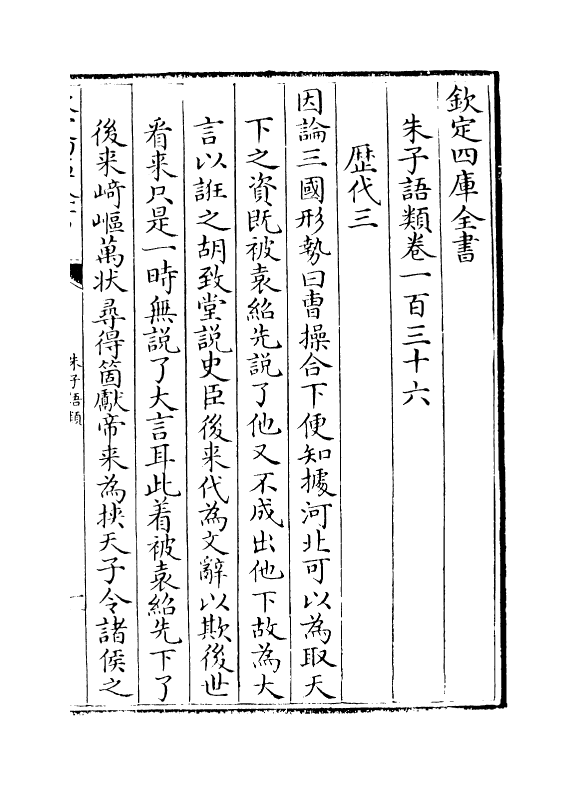 欽定四庫全書
朱子語類卷一百三十六
歴代三
因論三國形勢曰曹操合下便知據河北可以為取天
下之資既被袁紹先説了他又不成出他下故為大
言以誑之胡致堂説史臣後来代為文辭以欺後世
看来只是一時無説了大言耳此着被袁紹先下了
後来﨑嶇萬状尋得箇獻帝来為挾天子令諸侯之
朱子語類
一